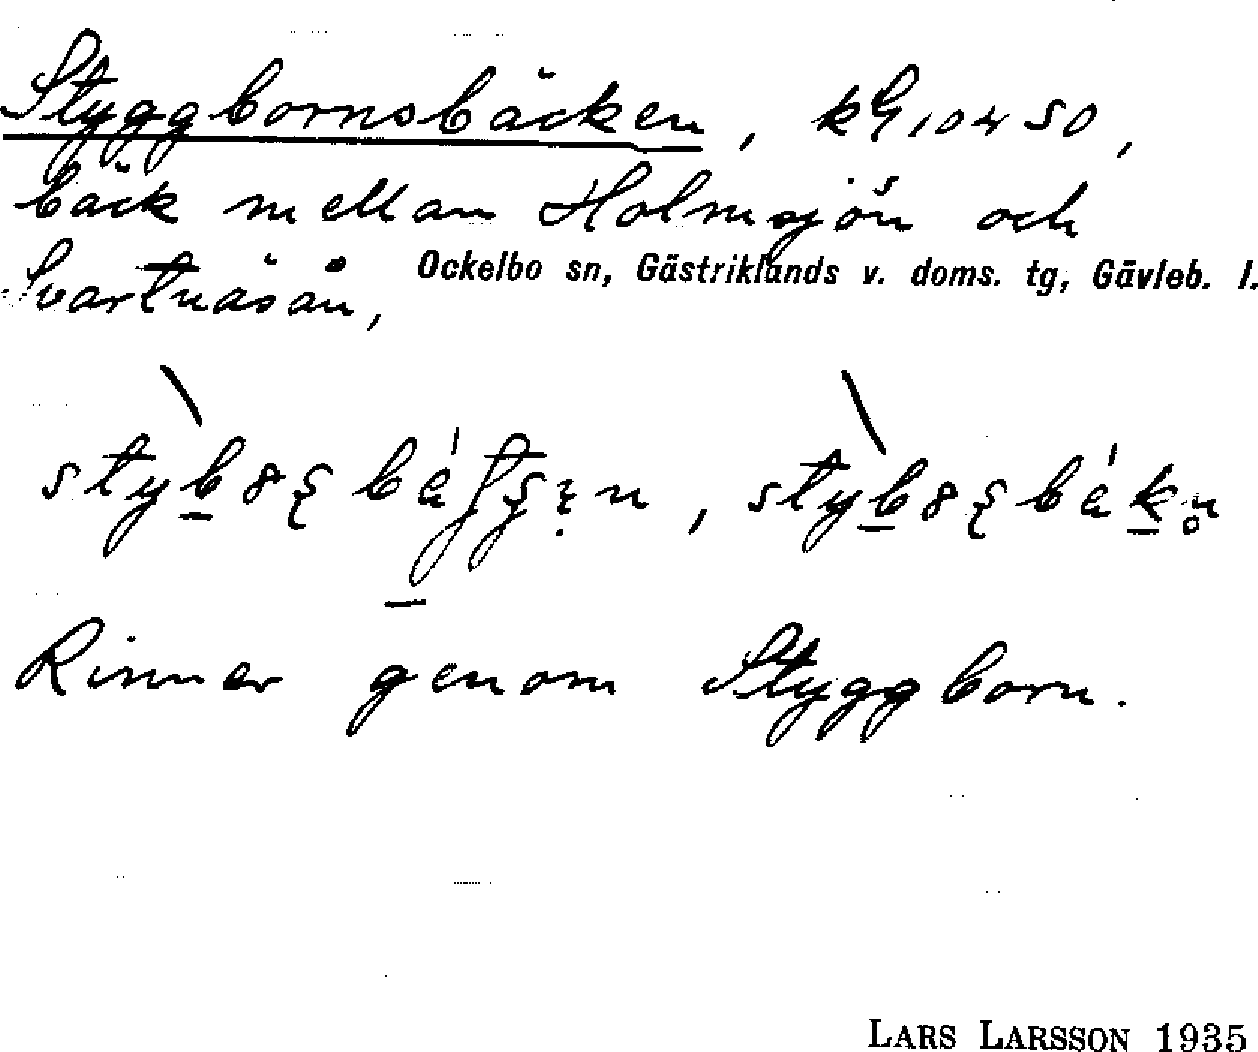 Styggbornsbäcken, kG 10450,
bäck mellan Holmsjön och
Svartnäsån,
Ockelbo sn, Gästriklands v. doms. tg, Gävleb. l.
Rinner genom Styggborn.
LARS LARSSON 1935